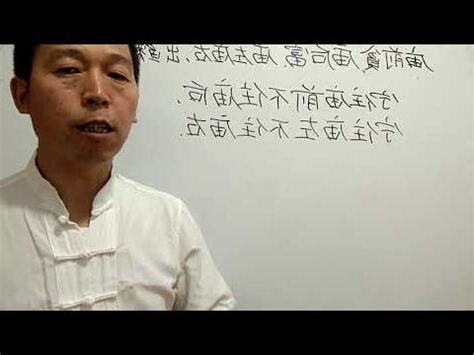 庙前贫,庙后富,庙左庙右,出
宁住庙前不住庙后,
宁住庙左不住庙右.